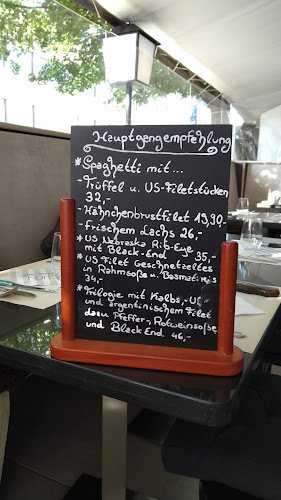 Hauptgangempfehlung
* Spaghetti mit...
- Trüffel u. US-Filetstücken
32,-
- Hähnchenbrustfilet 19,90
- frischem Lachs 26,-
* US Nebraska Rib-Eye
mit Black-End 35,-
* US Filet Geschnetzeltes
in Rahmsoße u. Basmatireis
34,-
* Trilogie mit Kalbs-, US
und argentinischem Filet
dazu Pfeffer-, Rotweinsoße
und Black End 46,-